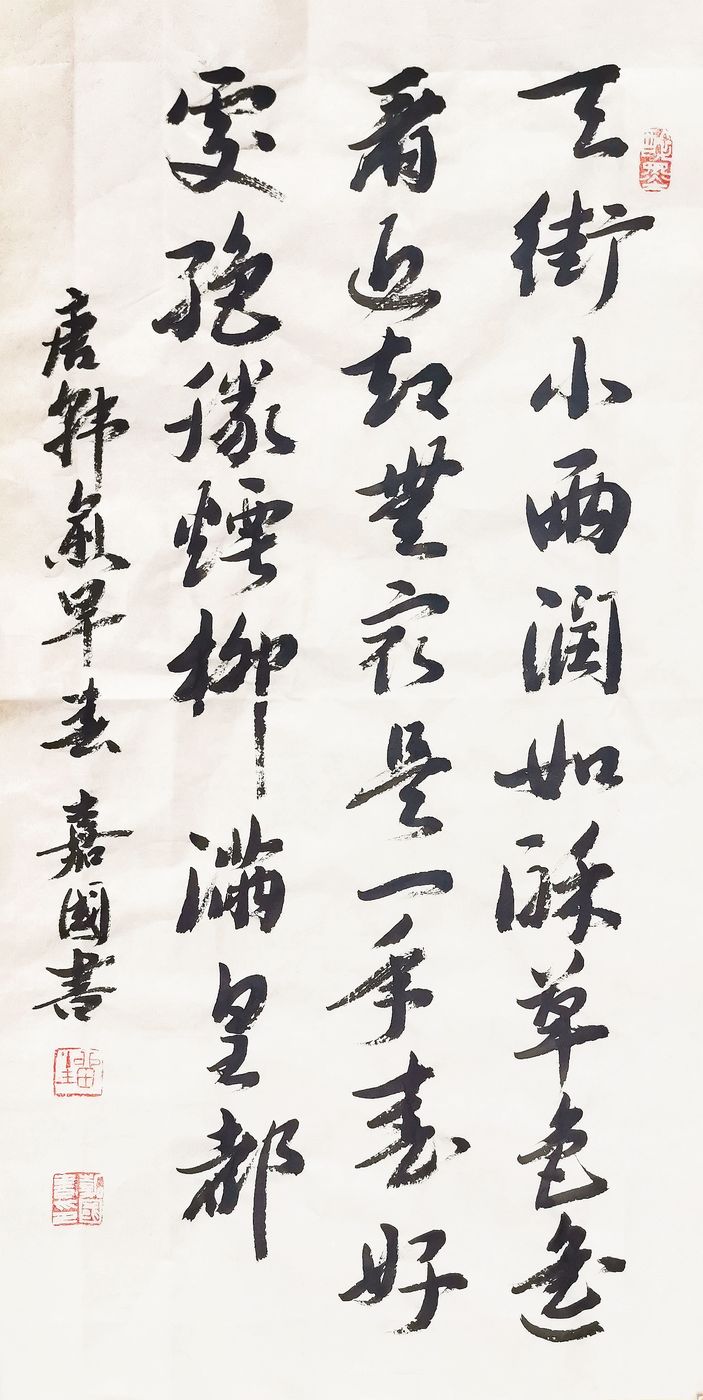 天街小雨潤如酥草色遙
看近却無最是一年春好
處絕勝煙柳滿皇都
唐韓愈早春 嘉國書